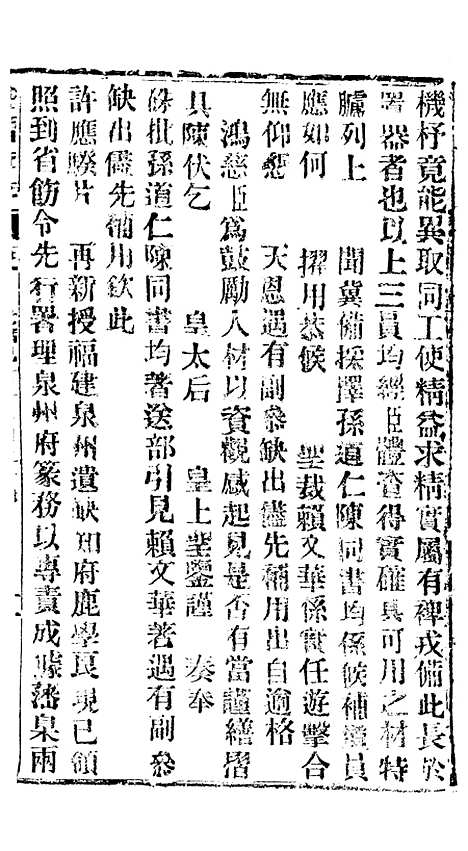 機杼竟能異取同工使精益求精實屬有裨戎備此長於
器者也以上三員均經臣體查得實確具可用之材特
臚列上　聞冀備採擇孫道仁陳同書均係候補員
應如何　擢用恭候　聖裁賴文華係實任遊擊合
無仰懇　天恩遇有副參缺出儘先補用出自逾格
鴻慈臣爲鼓勵人材以資觀感起見是否有當謹繕摺
具陳伏乞　皇太后　皇上聖鑒謹　奏奉
硃批孫道仁陳同書均著送部引見賴文華著遇有副參
缺出儘先補用欽此
許應騤片　再新授福建泉州遺缺知府鹿學良現已領
照到省飭令先行署理泉州府篆務以專責成據藩臬兩